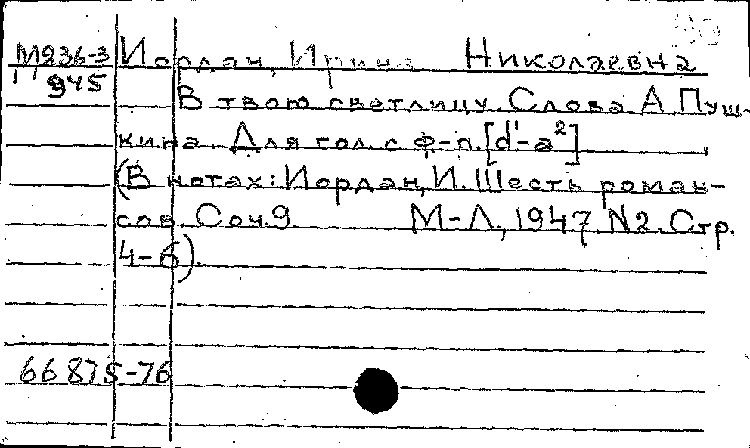 М236-3 Иордан, Ирина Николаевна
945
В твою светлицу. Слова А. Пуш-
кина. Для гол. с ф-п. [d¹-a²]
(В нотах: Иордан, И. Шесть роман-
сов. Соч. 9 М-Л, 1947 N2. Стр.
4-6).
66875-76